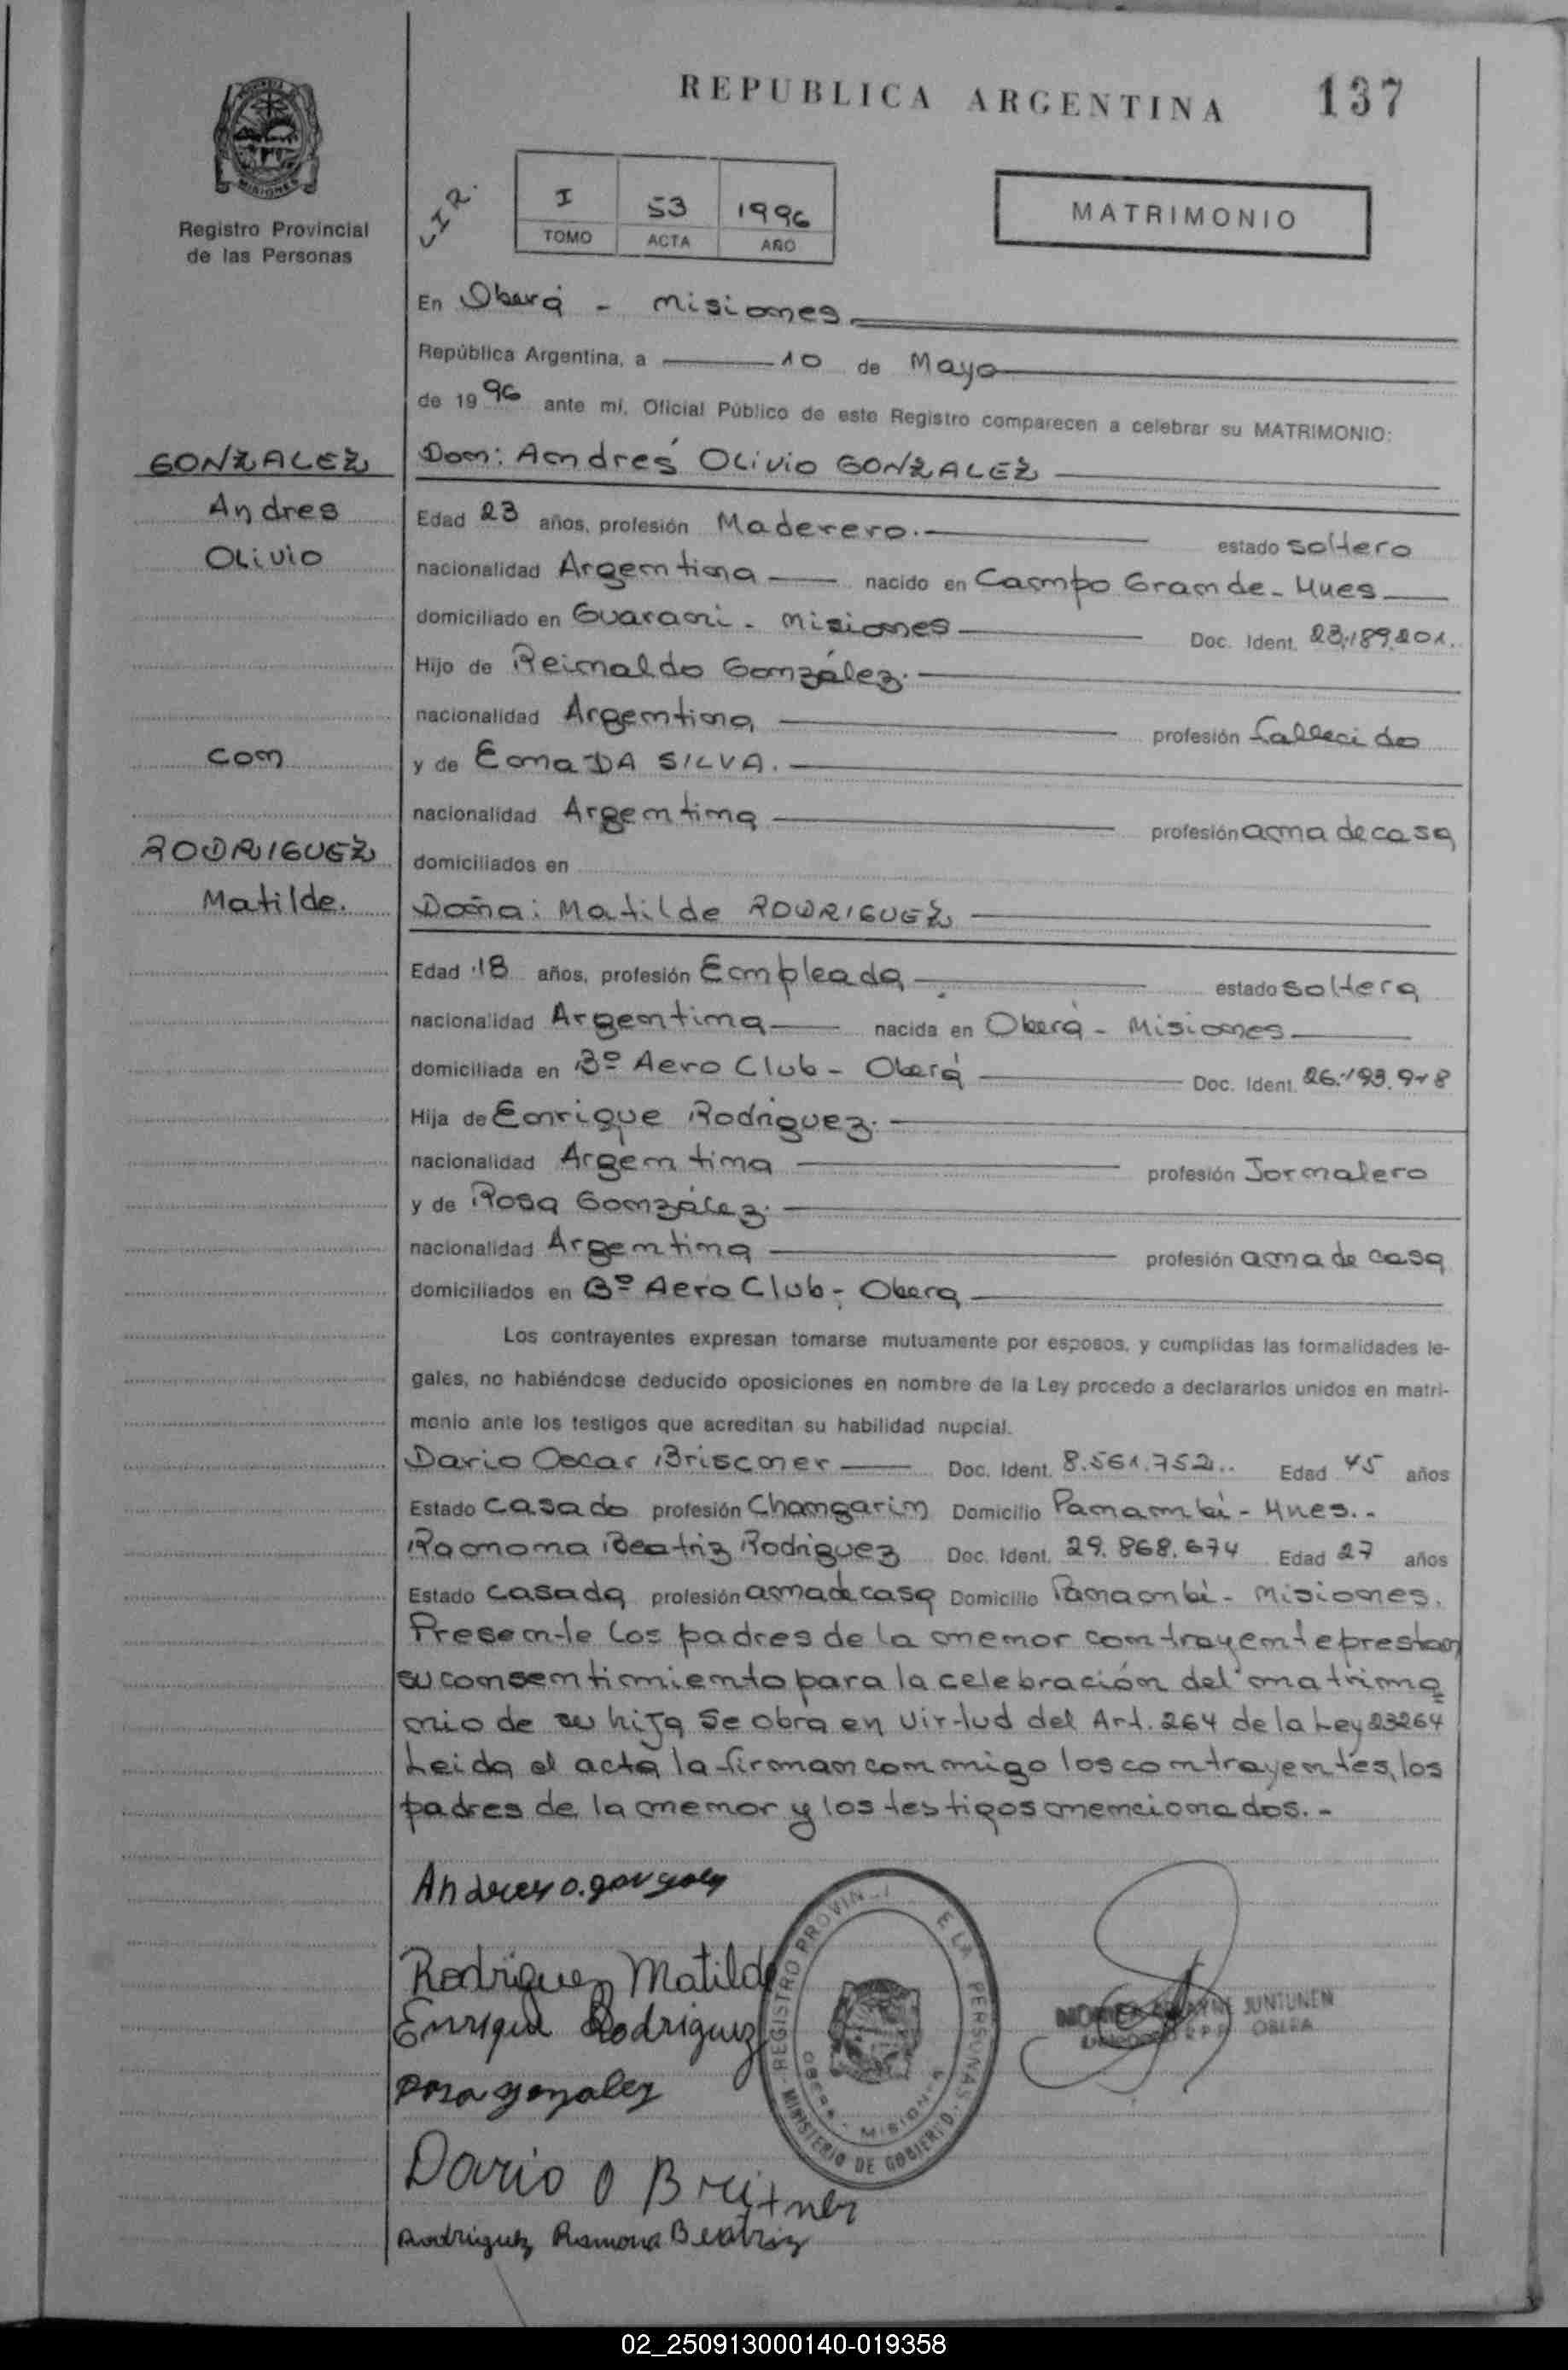 REPUBLICA ARGENTINA 137
MISIONES
Registro Provincial
de las Personas
I 53 1996
TOMO ACTA AÑO
MATRIMONIO
En Oberá - Misiones
República Argentina, a 10 de Mayo
de 1996 ante mí, Oficial Público de este Registro comparecen a celebrar su MATRIMONIO:
GONZALEZ
Andres
Olivio
con
RODRIGUEZ
Matilde.
Don: Andrés Olivio GONZALEZ
Edad 23 años, profesión Maderero. estado soltero
nacionalidad Argentina nacido en Campo Grande - Mnes
domiciliado en Guaraní - Misiones Doc. Ident. 23.189.201.
Hijo de Reinaldo González.
nacionalidad Argentina profesión fallecido
y de Ema DA SILVA.
nacionalidad Argentina profesión ama de casa
domiciliados en
Doña: Matilde RODRIGUEZ
Edad 18 años, profesión Empleada estado soltera
nacionalidad Argentina nacida en Oberá - Misiones
domiciliada en Bº Aero Club - Oberá Doc. Ident. 26.193.918
Hija de Enrique Rodriguez.
nacionalidad Argentina profesión Jornalero
y de Rosa González.
nacionalidad Argentina profesión ama de casa
domiciliados en Bº Aero Club - Obera
Los contrayentes expresan tomarse mutuamente por esposos, y cumplidas las formalidades le-
gales, no habiéndose deducido oposiciones en nombre de la Ley procedo a declararlos unidos en matri-
monio ante los testigos que acreditan su habilidad nupcial.
Dario Oscar Doc. Ident. 8.561.752.. Edad 45 años
Estado casado profesión Changarin Domicilio Panambí - Mnes. -
Ramona Beatriz Rodriguez Doc. Ident. 29.868.674 Edad 27 años
Estado casada profesión ama de casa Domicilio Panambí - Misiones.
Presente los padres de la menor contrayente prestan
su consentimiento para la celebración del matrimo
nio de su hija se obra en virtud del Art. 264 de la Ley 23264
Leida el acta la firman conmigo los contrayentes, los
padres de la menor y los testigos mencionados. -
Andres O. gonzalez
Rodriguez Matilde
Enrique Rodriguez
Rosa gonzalez
Dario O
Rodriguez Ramona Beatriz
REGISTRO PERSONAS
MINISTERIO DE GOBIERNO
JUNTUNEN
OBERA
02_250913000140-019358